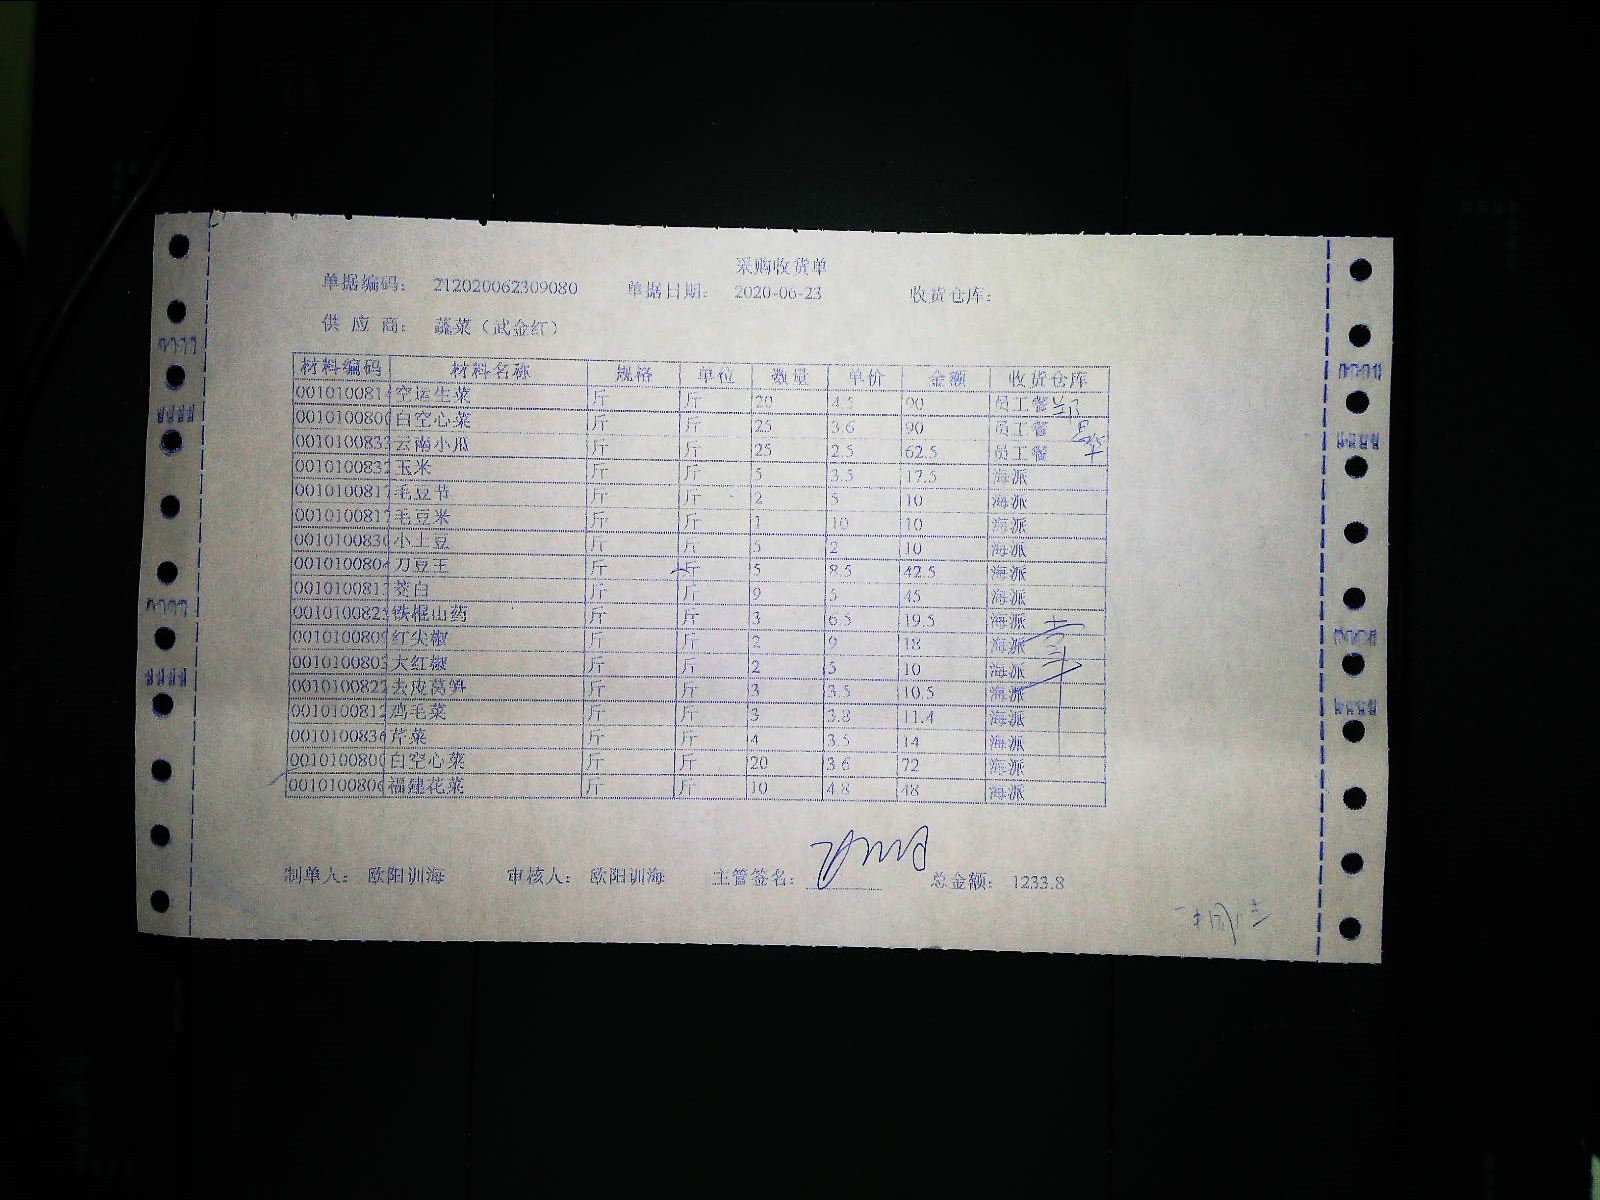 采购收货单
单据编码： 212020062309080 单据日期： 2020-06-23 收货仓库：
供 应 商： 蔬菜（武金红）
材料编码 材料名称 规格 单位 数量 单价 金额 收货仓库
001010081 空运生菜 斤 斤 20 4.5 90 员工餐
001010080 白空心菜 斤 斤 25 3.6 90 员工餐
001010083 云南小瓜 斤 斤 25 2.5 62.5 员工餐
0010100832 玉米 斤 斤 5 3.5 17.5 海派
001010081 毛豆节 斤 斤 2 5 10 海派
001010081 毛豆米 斤 斤 1 10 10 海派
001010083 小土豆 斤 斤 5 2 10 海派
001010080 刀豆王 斤 斤 5 8.5 42.5 海派
001010081 茭白 斤 斤 9 5 45 海派
001010082 铁棍山药 斤 斤 3 6.5 19.5 海派
001010080 红尖椒 斤 斤 2 9 18 海派
001010080 大红椒 斤 斤 2 5 10 海派
001010082 去皮莴笋 斤 斤 3 3.5 10.5 海派
001010081 鸡毛菜 斤 斤 3 3.8 11.4 海派
001010083 芹菜 斤 斤 4 3.5 14 海派
001010080 白空心菜 斤 斤 20 3.6 72 海派
001010080 福建花菜 斤 斤 10 4.8 48 海派
制单人： 欧阳训海 审核人： 欧阳训海 主管签名： 总金额： 1233.8